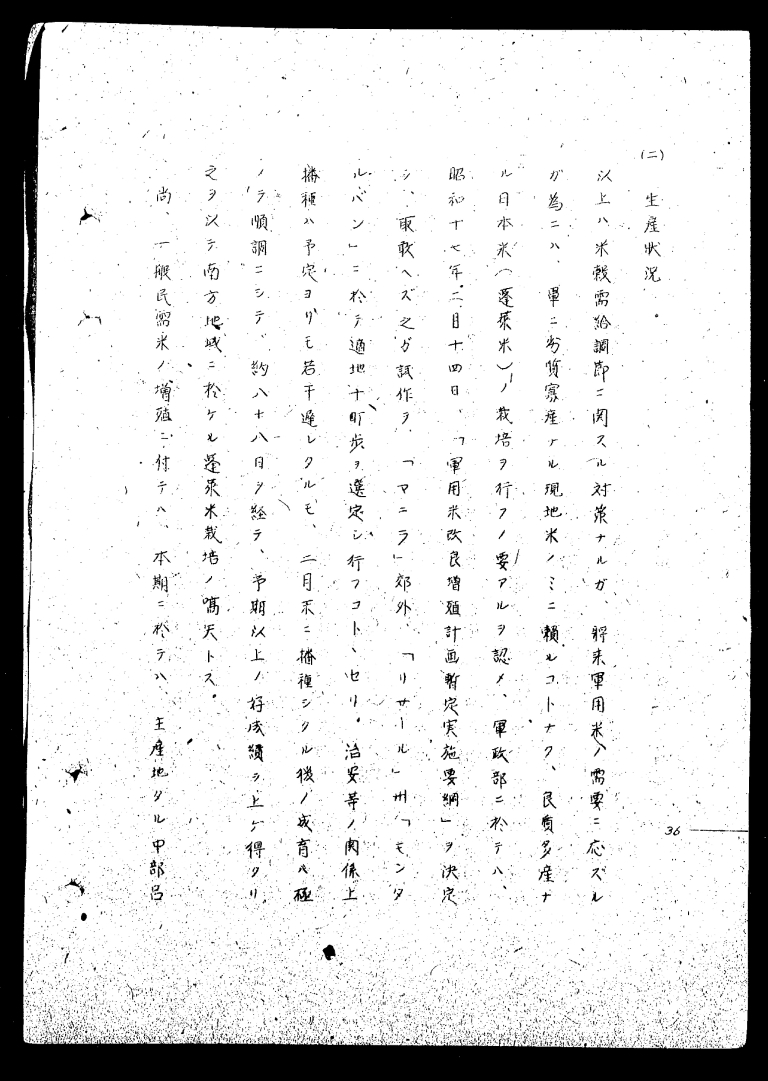 (二) 生産状況
以上ハ米穀需給調節ニ関スル対策ナルガ、将来軍用米ノ需要ニ応ズル
ガ為ニハ、軍ニ劣質寡産ナル現地米ノミニ頼ルコトナク、良質多産ナ
ル日本米(蓬萊米)ノ栽培ヲ行フノ要アルヲ認メ、軍政部ニ於テハ、
昭和十七年二月十四日、「軍用米改良増殖計画暫定実施要綱」ヲ決定
シ、取敢ヘズ之ガ試作ヲ、「マニラ」郊外、「リサール」州「モンタ
ルバン」ニ於テ適地十町歩ヲ選定シ行フコトヽセリ。治安等ノ関係上
播種ハ予定ヨリモ若干遅レタルモ、二月末ニ播種シタル後ノ成育ハ極
メテ順調ニシテ、約八十八日ヲ経テ、予期以上ノ好成績ヲ上ゲ得タリ
之ヲ以テ南方地域ニ於ケル蓬萊米栽培ノ嚆矢トス。
尚、一般民需米ノ増殖ニ付テハ、本期ニ於テハ、主産地タル中部呂
36